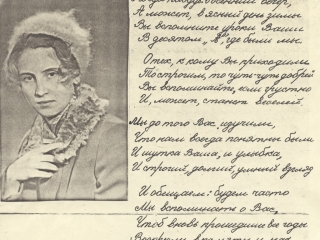 А может, в ясный день зимы
Вы вспомните уроки Ваши
В десятом "в", где были мы.
О тех, к кому Вы приходили
Построгим, то чуть-чуть добрей
Вы вспоминайте, коли грустно
И, может, станет веселей.
Мы до того Вас изучили,
Что нам всегда понятны были
И шутка Ваша, и улыбка
И строгий, долгий, умный взгляд
И обещаем: будем часто
Мы вспоминать о Вас,
Чтоб вновь прошедшие все годы